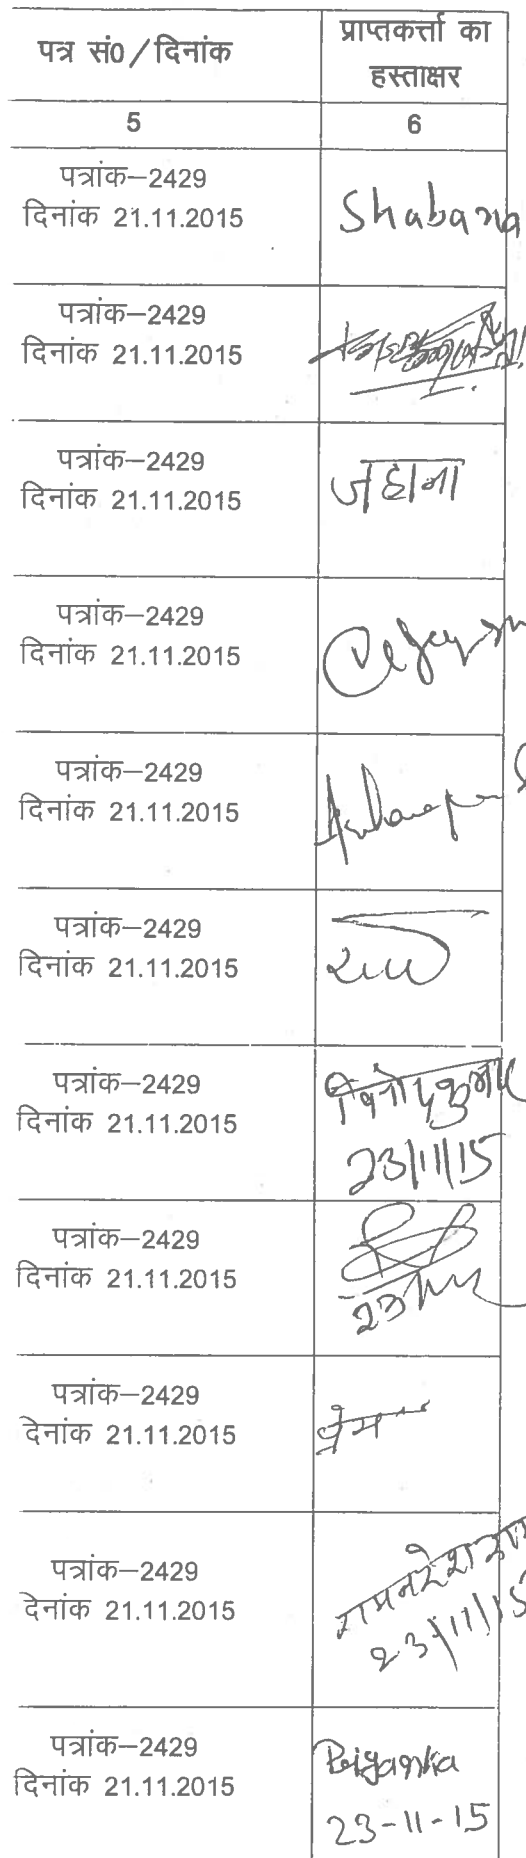 पत्र सं0/दिनांक
प्राप्तकर्त्ता का
हस्ताक्षर
5
6
पत्रांक–2429
दिनांक 21.11.2015
Shabana
पत्रांक–2429
दिनांक 21.11.2015
पत्रांक–2429
दिनांक 21.11.2015
जहाना
पत्रांक–2429
दिनांक 21.11.2015
पत्रांक–2429
दिनांक 21.11.2015
पत्रांक–2429
दिनांक 21.11.2015
पत्रांक–2429
दिनांक 21.11.2015
विनोद कुमार
23/11/15
पत्रांक–2429
दिनांक 21.11.2015
पत्रांक–2429
देनांक 21.11.2015
प्रेम
पत्रांक–2429
देनांक 21.11.2015
23/11/15
पत्रांक–2429
दिनांक 21.11.2015
Priyanka
23-11-15